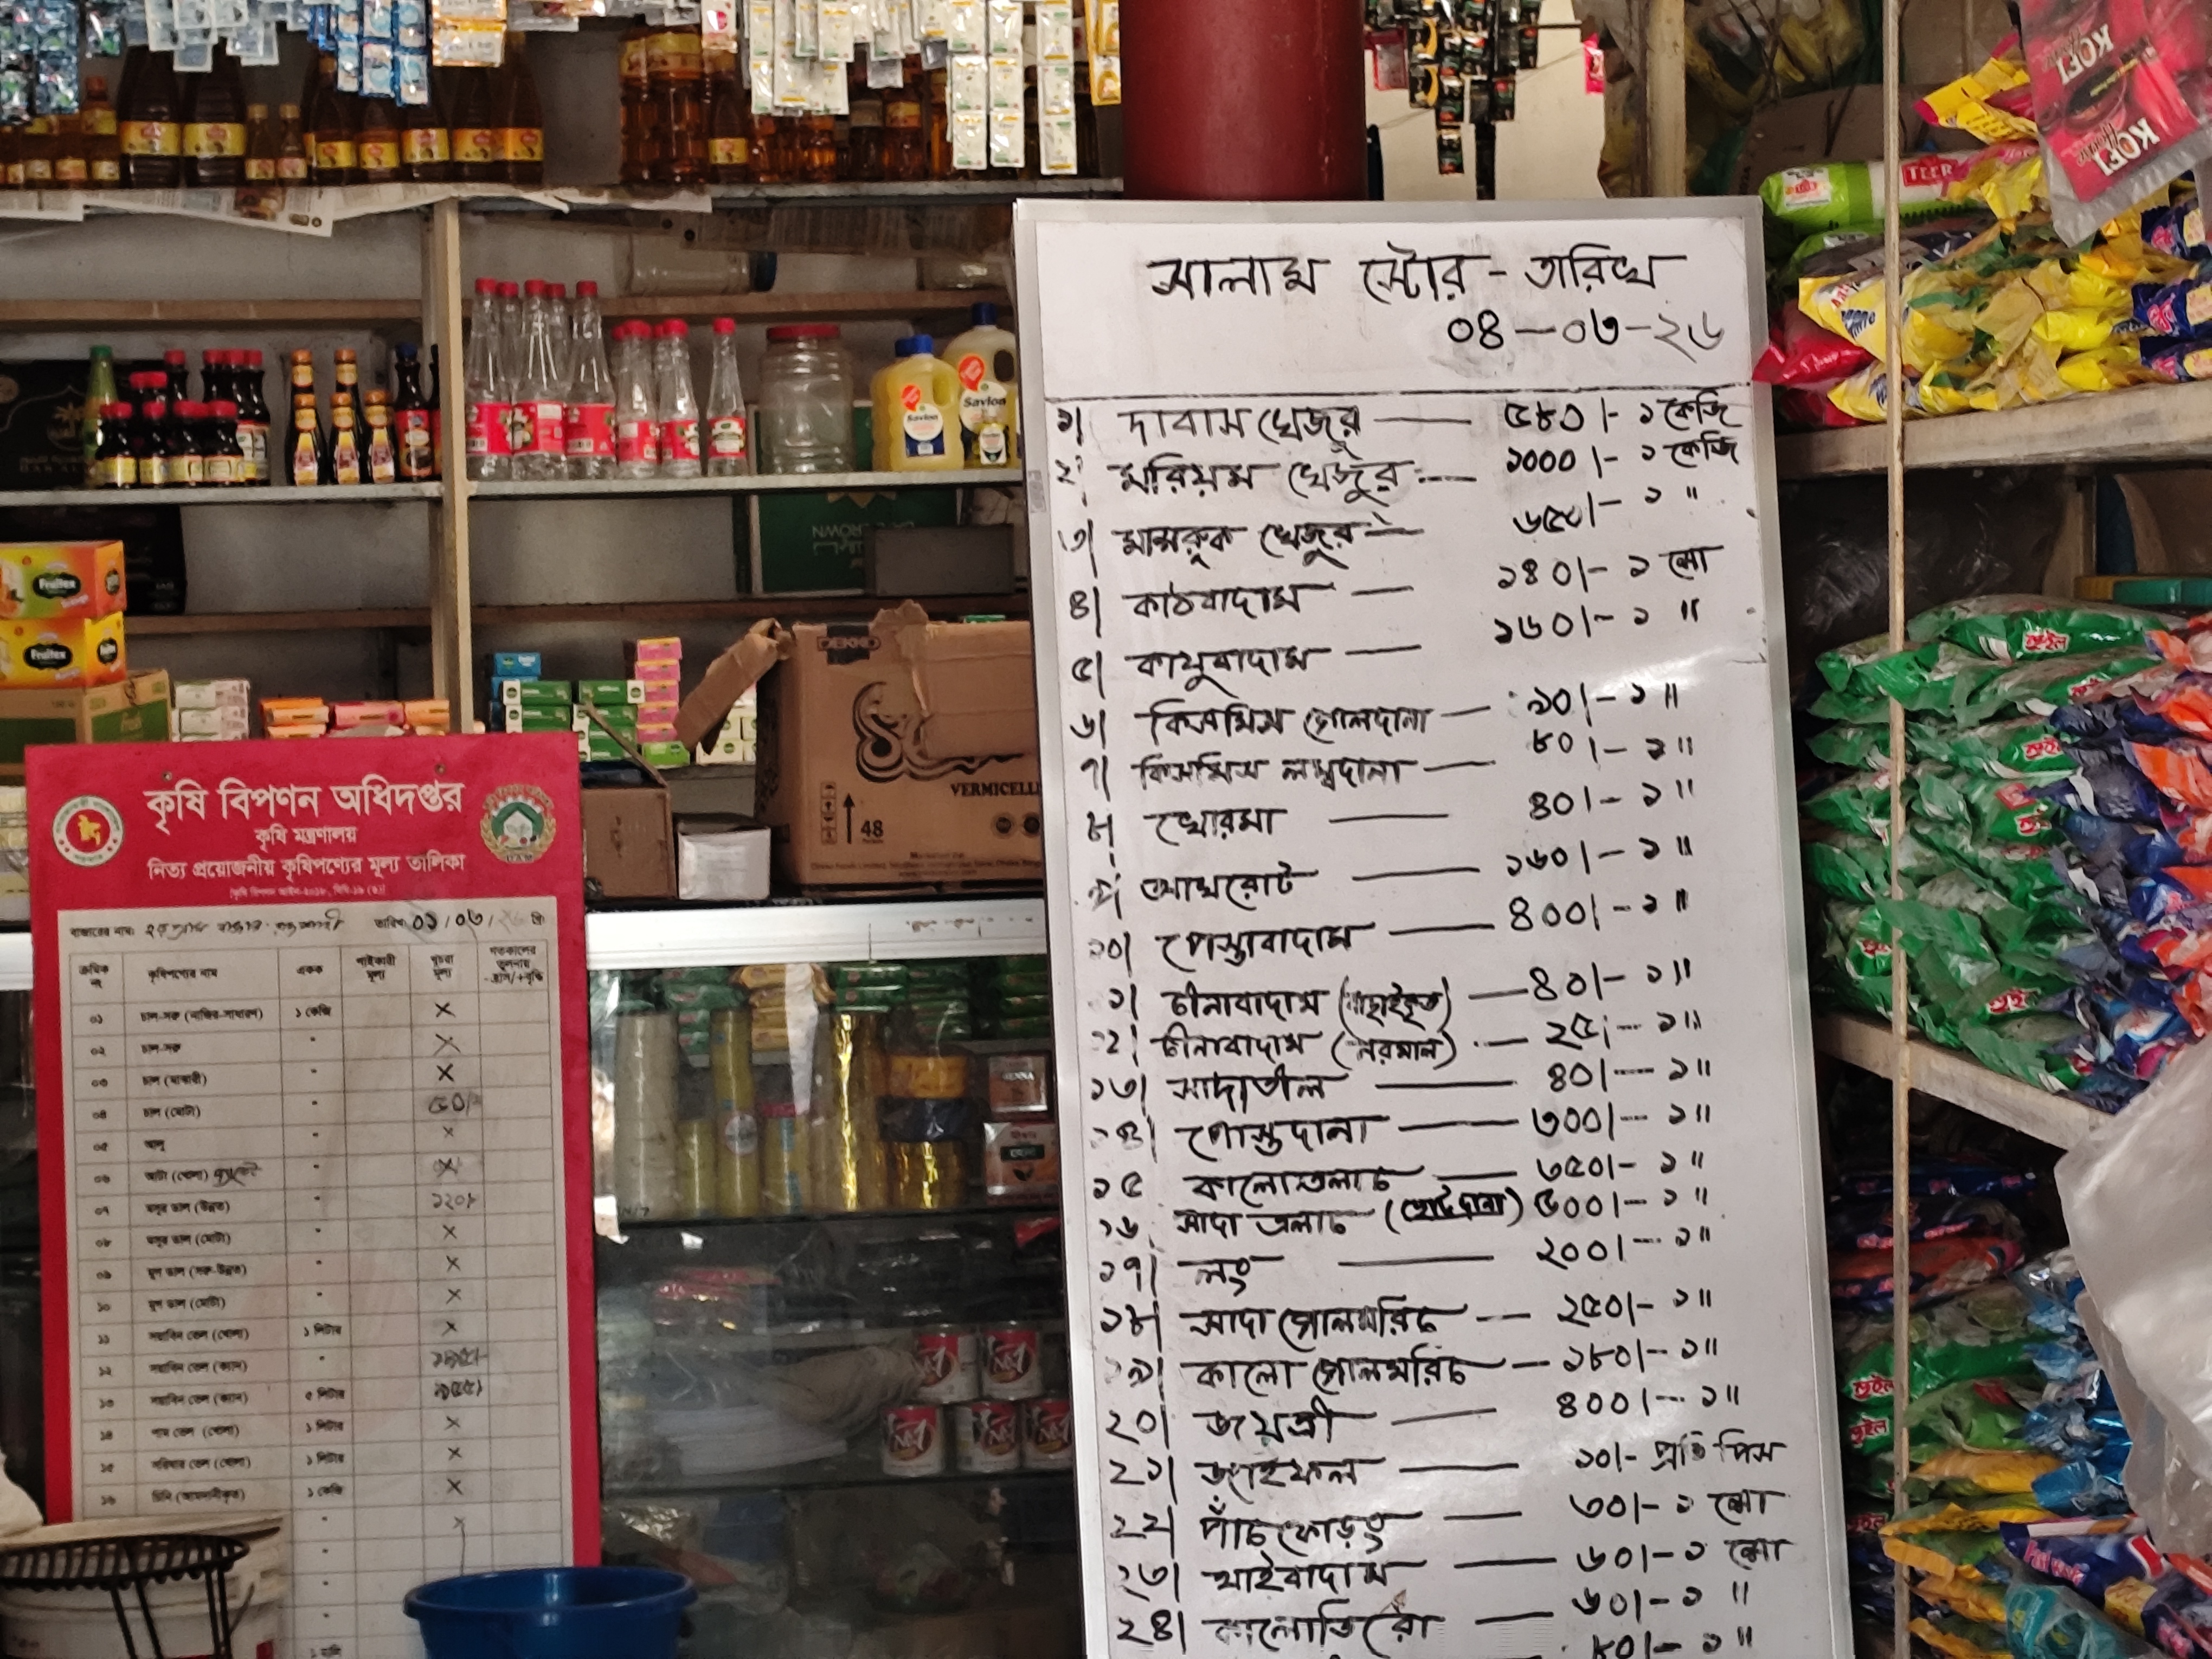 সালাম স্টোর - তারিখ
০৪-০৩-২৬
১| দাবাস খেজুর — ৫৪০/- ১ কেজি
২| মরিয়ম খেজুর — ১০০০/- ১ কেজি
৩| মাসরুক খেজুর — ৬৫০/- ১ "
৪| কাঠবাদাম — ১৪০/- ১ শো
৫| কাযুবাদাম — ১৬০/- ১ "
৬| কিসমিস গোলদানা — ৯০/- ১ "
৭| কিসমিস লম্বদানা — ৮০/- ১ "
৮| খোরমা — ৪০/- ১ "
৯| আখরোট — ১৬০/- ১ "
১০| পেস্তাবাদাম — ৪০০/- ১ "
১১| চীনাবাদাম — ৪০/- ১ "
১২| চীনাবাদাম (নরমাল) — ২৫/- ১ "
১৩| সাদাতীল — ৪০/- ১ "
১৪| পোস্তদানা — ৩০০/- ১ "
১৫ কালোএলাচ — ৩৫০/- ১ "
১৬ সাদা এলাচ (ছোটদানা) ৫০০/- ১ "
১৭| লং — ২০০/- ১ "
১৮| সাদা গোলমরিচ — ২৫০/- ১ "
১৯| কালো গোলমরিচ — ১৮০/- ১ "
২০| জয়ত্রী — ৪০০/- ১ "
২১| জাইফল — ১০/- প্রতি পিস
২২| পাঁচফোড়ং — ৩০/- ১ শো
২৩| খাইবাদাম — ৬০/- ১ শো
২৪| কালোজিরা — ৬০/- ১ "
৮০/- ১ "
কৃষি বিপণন অধিদপ্তর
কৃষি মন্ত্রণালয়
নিত্য প্রয়োজনীয় কৃষিপণ্যের মূল্য তালিকা
[কৃষি বিপণন আইন-২০১৮, বিধি-১৯ (৪)]
বাজারের নাম: তারিখ ০১/০৩/২৬ খ্রি:
ক্রমিক নং কৃষিপণ্যের নাম একক পাইকারী মূল্য খুচরা মূল্য গতকালের তুলনায় -হ্রাস/+বৃদ্ধি
০১ চাল-সরু (নাজির-সাধারণ) ১ কেজি ×
০২ চাল-সরু " ×
০৩ চাল (মাঝারী) " ×
০৪ চাল (মোটা) " ৫০/-
০৫ আলু " ×
০৬ আটা (খোলা) প্যাকেট " ×
০৭ মসুর ডাল (উন্নত) " ১২০/-
০৮ মসুর ডাল (মোটা) " ×
০৯ মুগ ডাল (সরু-উন্নত) " ×
১০ মুগ ডাল (মোটা) " ×
১১ সয়াবিন তেল (খোলা) ১ লিটার ×
১২ সয়াবিন তেল (ক্যান) "
১৩ সয়াবিন তেল (ক্যান) ৫ লিটার ৯৫৫/
১৪ পাম তেল (খোলা) ১ লিটার ×
১৫ সরিষার তেল (খোলা) ১ লিটার ×
১৬ চিনি (আমদানীকৃত) ১ কেজি ×
Savlon
Savlon
Fruitex
Fruitex
DEKKO
VERMICELLI
48
TEER
KOFI
KOFI
হুইল